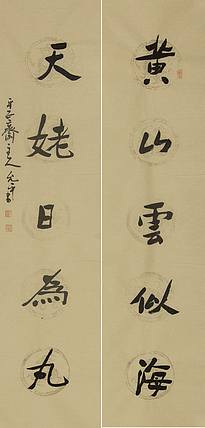 黄山雲似海
天姥日為丸